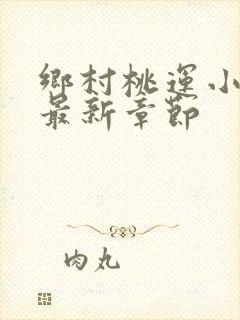 鄉村桃運小
最新章節
肉丸